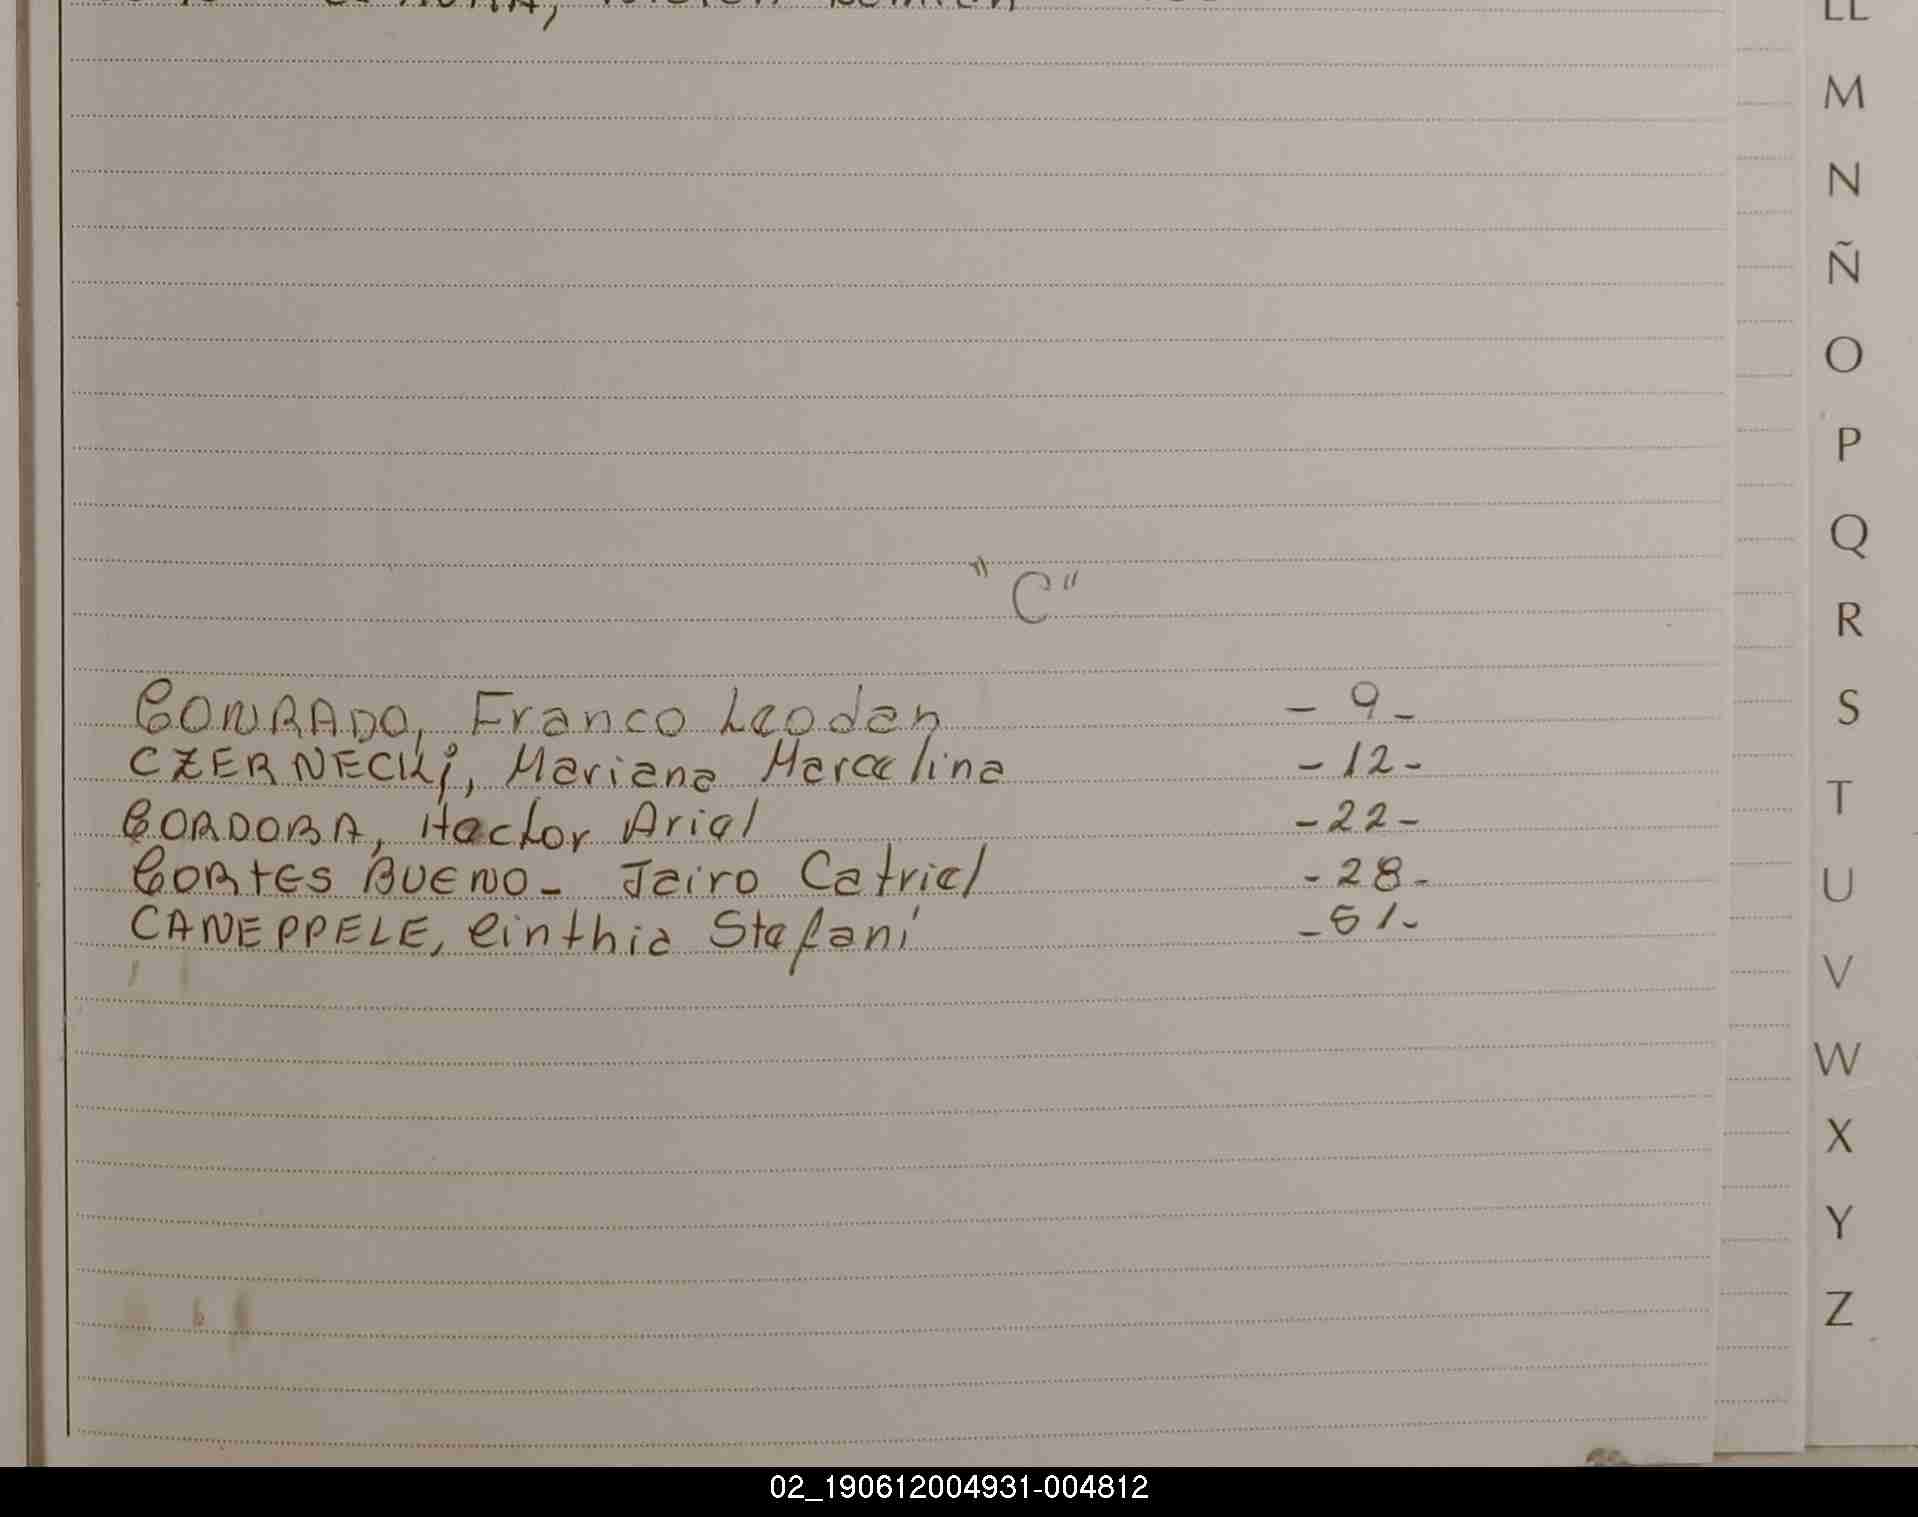 LL
M
N
Ñ
O
P
Q
R
S
T
U
V
W
X
Y
Z
"C"
CONRADO, Franco Leodan - 9 -
CZERNECKi, Mariana Marcelina - 12 -
CORDOBA, Hector Ariel - 22 -
CORtES BUENO - Jairo Catriel - 28 -
CANEPPELE, Cinthia Stefani - 51 -
02_190612004931-004812